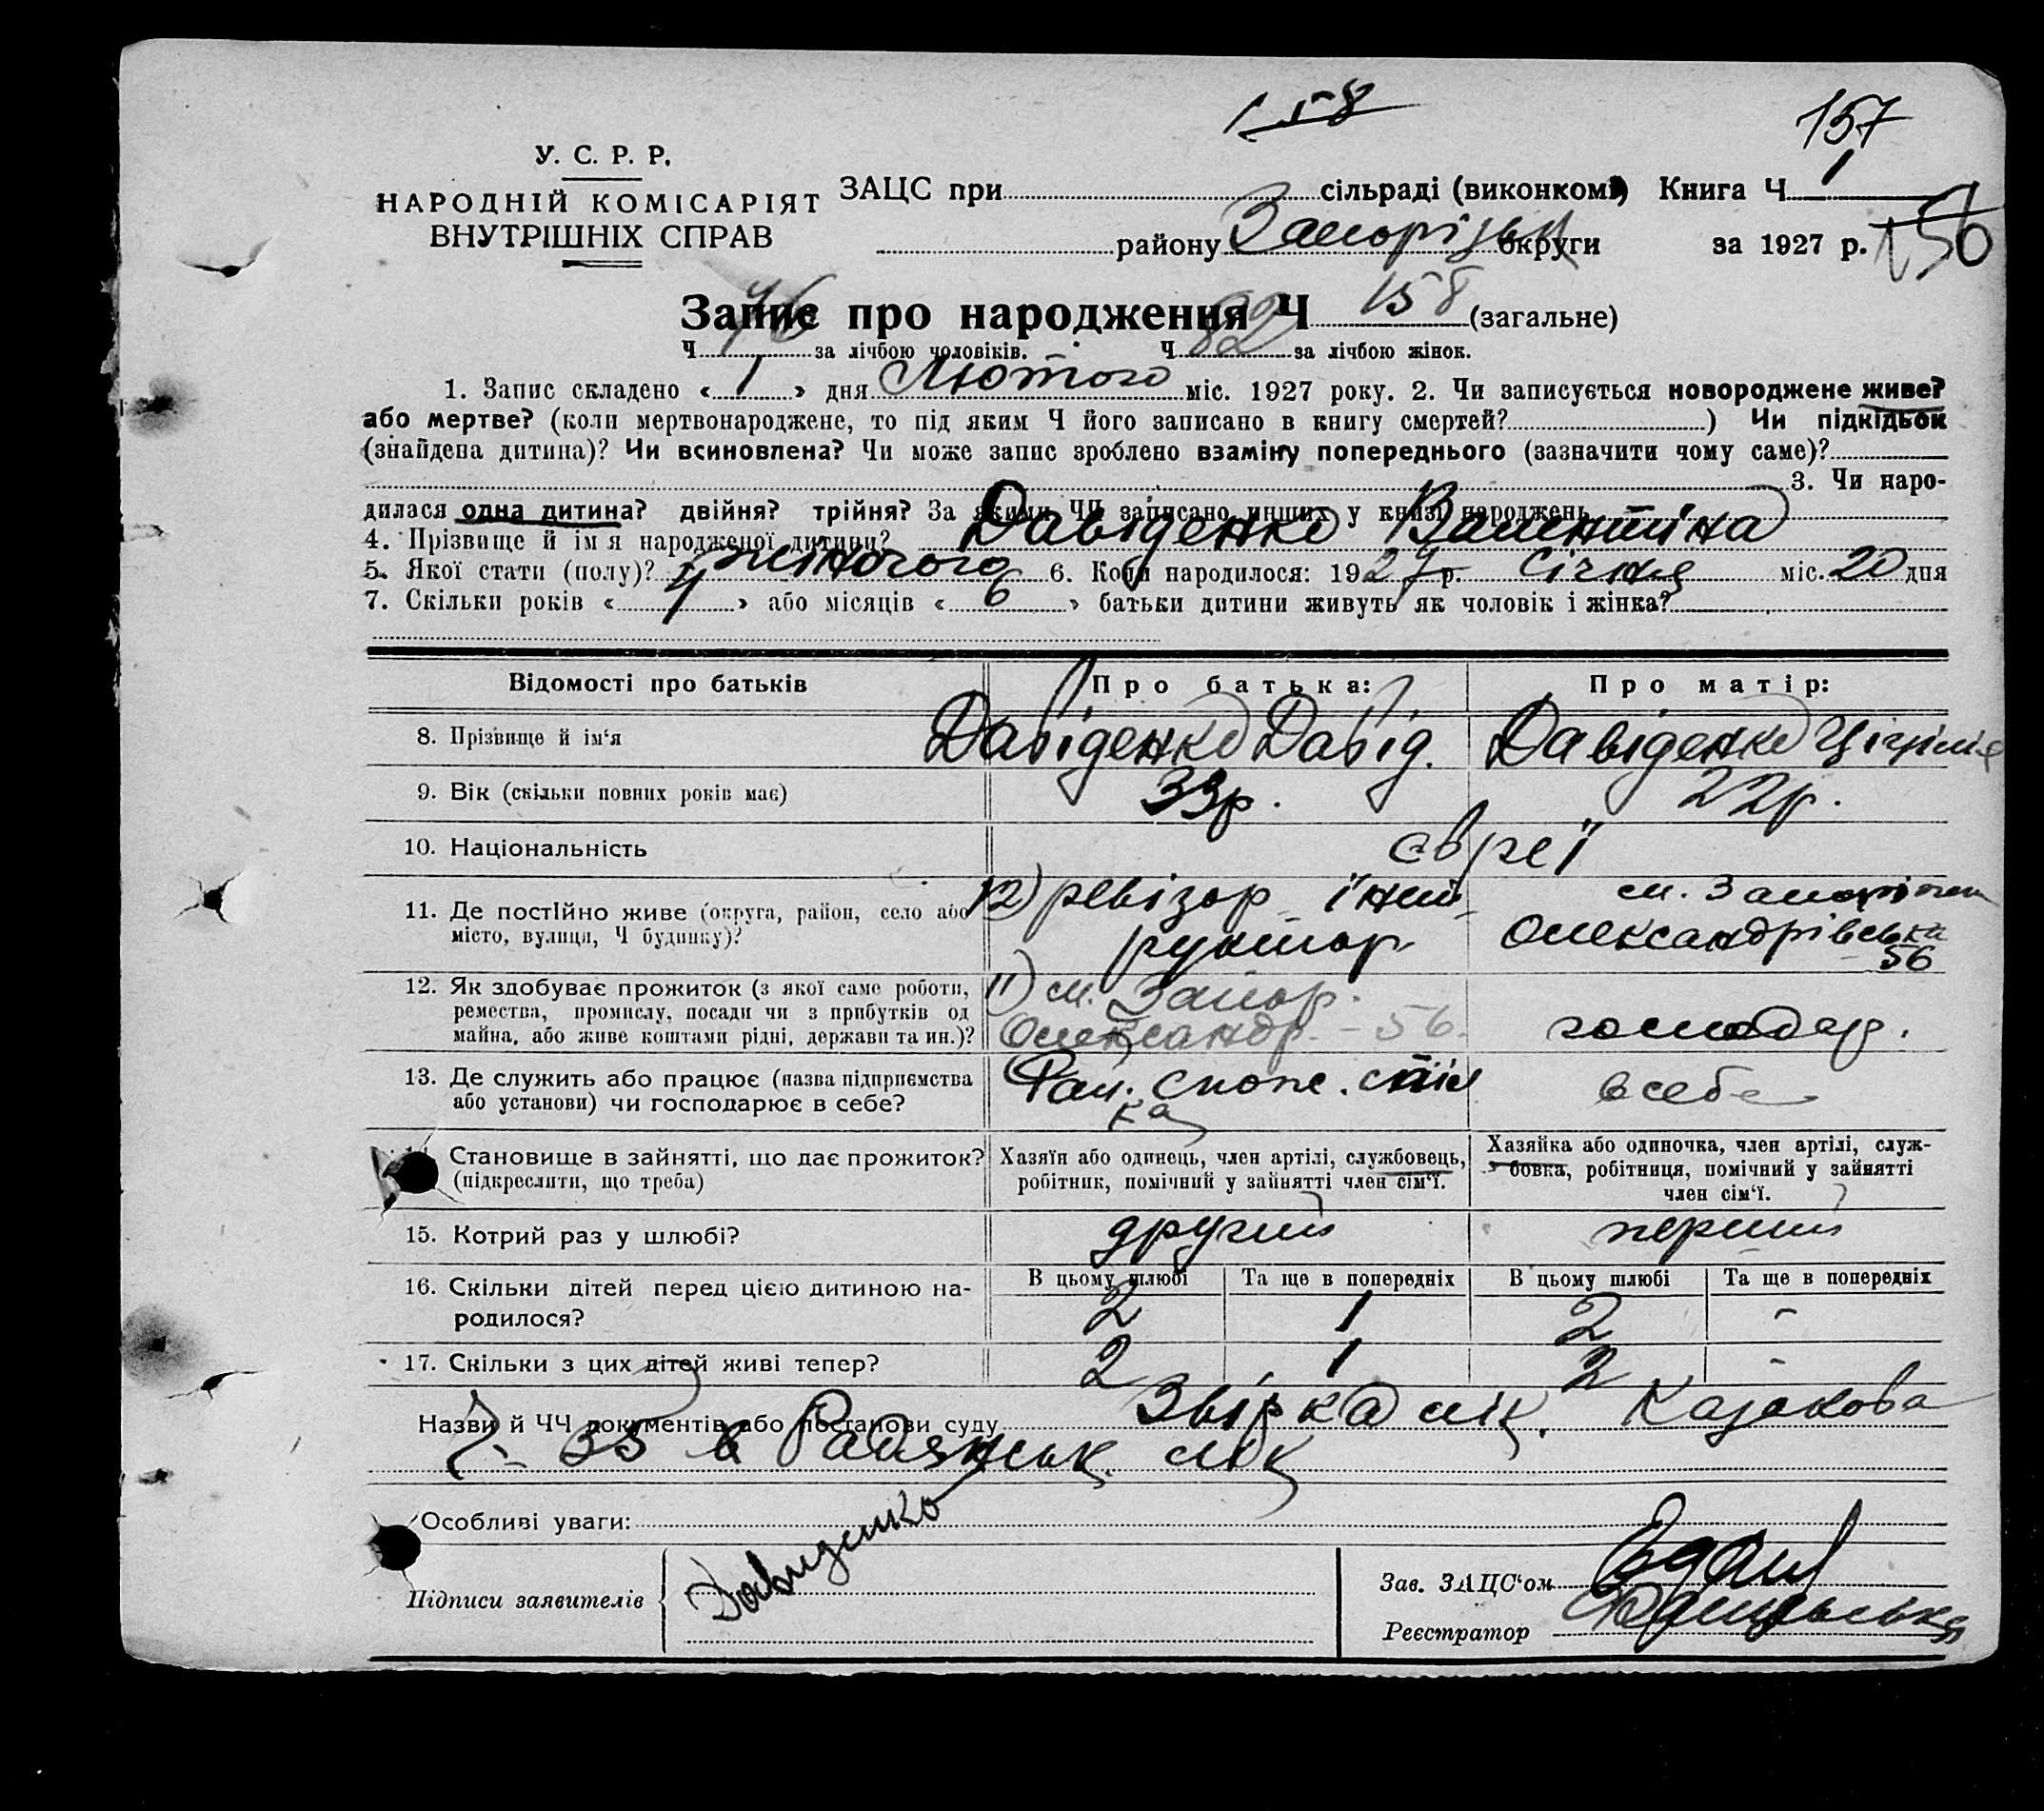 158
157
У. С. Р. Р.
НАРОДНІЙ КОМІСАРІЯТ
ВНУТРІШНІХ СПРАВ
ЗАЦС при сільраді (виконкомі) Книга Ч 1
району Запорізьк округи за 1927 р. 156
Запис про народження Ч 158 (загальне)
Ч 76 за лічбою чоловіків. Ч 82 за лічбою жінок.
1. Запис складено « 1 » дня Лютого міс. 1927 року. 2. Чи записується новороджене живе?
або мертве? (коли мертвонароджене, то під яким Ч його записано в книгу смертей? ) Чи підкідьок
(знайдена дитина)? Чи всиновлена? Чи може запис зроблено взаміну попереднього (зазначити чому саме)?
3. Чи наро-
дилася одна дитина? двійня? трійня? За якими ЧЧ записано инших у книзі народжень
4. Прізвище й ім я народженої дитини? Давіденко Валентіна
5. Якої стати (полу)? жіночого 6. Коли народилося: 1927 р. Січня міс. 20 дня
7. Скільки років « 4 » або місяців « 6 » батьки дитини живуть як чоловік і жінка?
Відомості про батьків Про батька: Про матір:
8. Прізвище й ім'я Давіденко Давід. Давіденко
9. Вік (скільки повних років має) 33р. 22р.
10. Національність євреї
11. Де постійно живе (округа, район, село або місто, вулиця, Ч будинку)?
12) ревізор інст-
руктор
м. Запоріжжя
Олександрівська
56
12. Як здобуває прожиток (з якої саме роботи,
ремества, промислу, посади чи з прибутків од
майна, або живе коштами рідні, держави та ин.)?
11) м. Запор.
Олександр. - 56.
господар.
13. Де служить або працює (назва підприємства
або установи) чи господарює в себе?
Рай. спож. спіл
ка
в себе
Становище в зайнятті, що дає прожиток?
(підкреслити, що треба)
Хазяїн або одинець, член артілі, службовець,
робітник, помічний у зайнятті член сім'ї.
Хазяйка або одиночка, член артілі, служ-
бовка, робітниця, помічний у зайнятті
член сім'ї.
15. Котрий раз у шлюбі? другий перший
16. Скільки дітей перед цією дитиною на-
родилося?
В цьому шлюбі Та ще в попередніх В цьому шлюбі Та ще в попередніх
2 1 2 -
17. Скільки з цих дітей живі тепер? 2 1 2 -
Назви й ЧЧ документів або постанови суду Звірка лік. Казакова
Ч. 35 в Радянськ. лік
Особливі уваги:
Підписи заявителів Давиденко
Зав. ЗАЦС'ом
Реєстратор